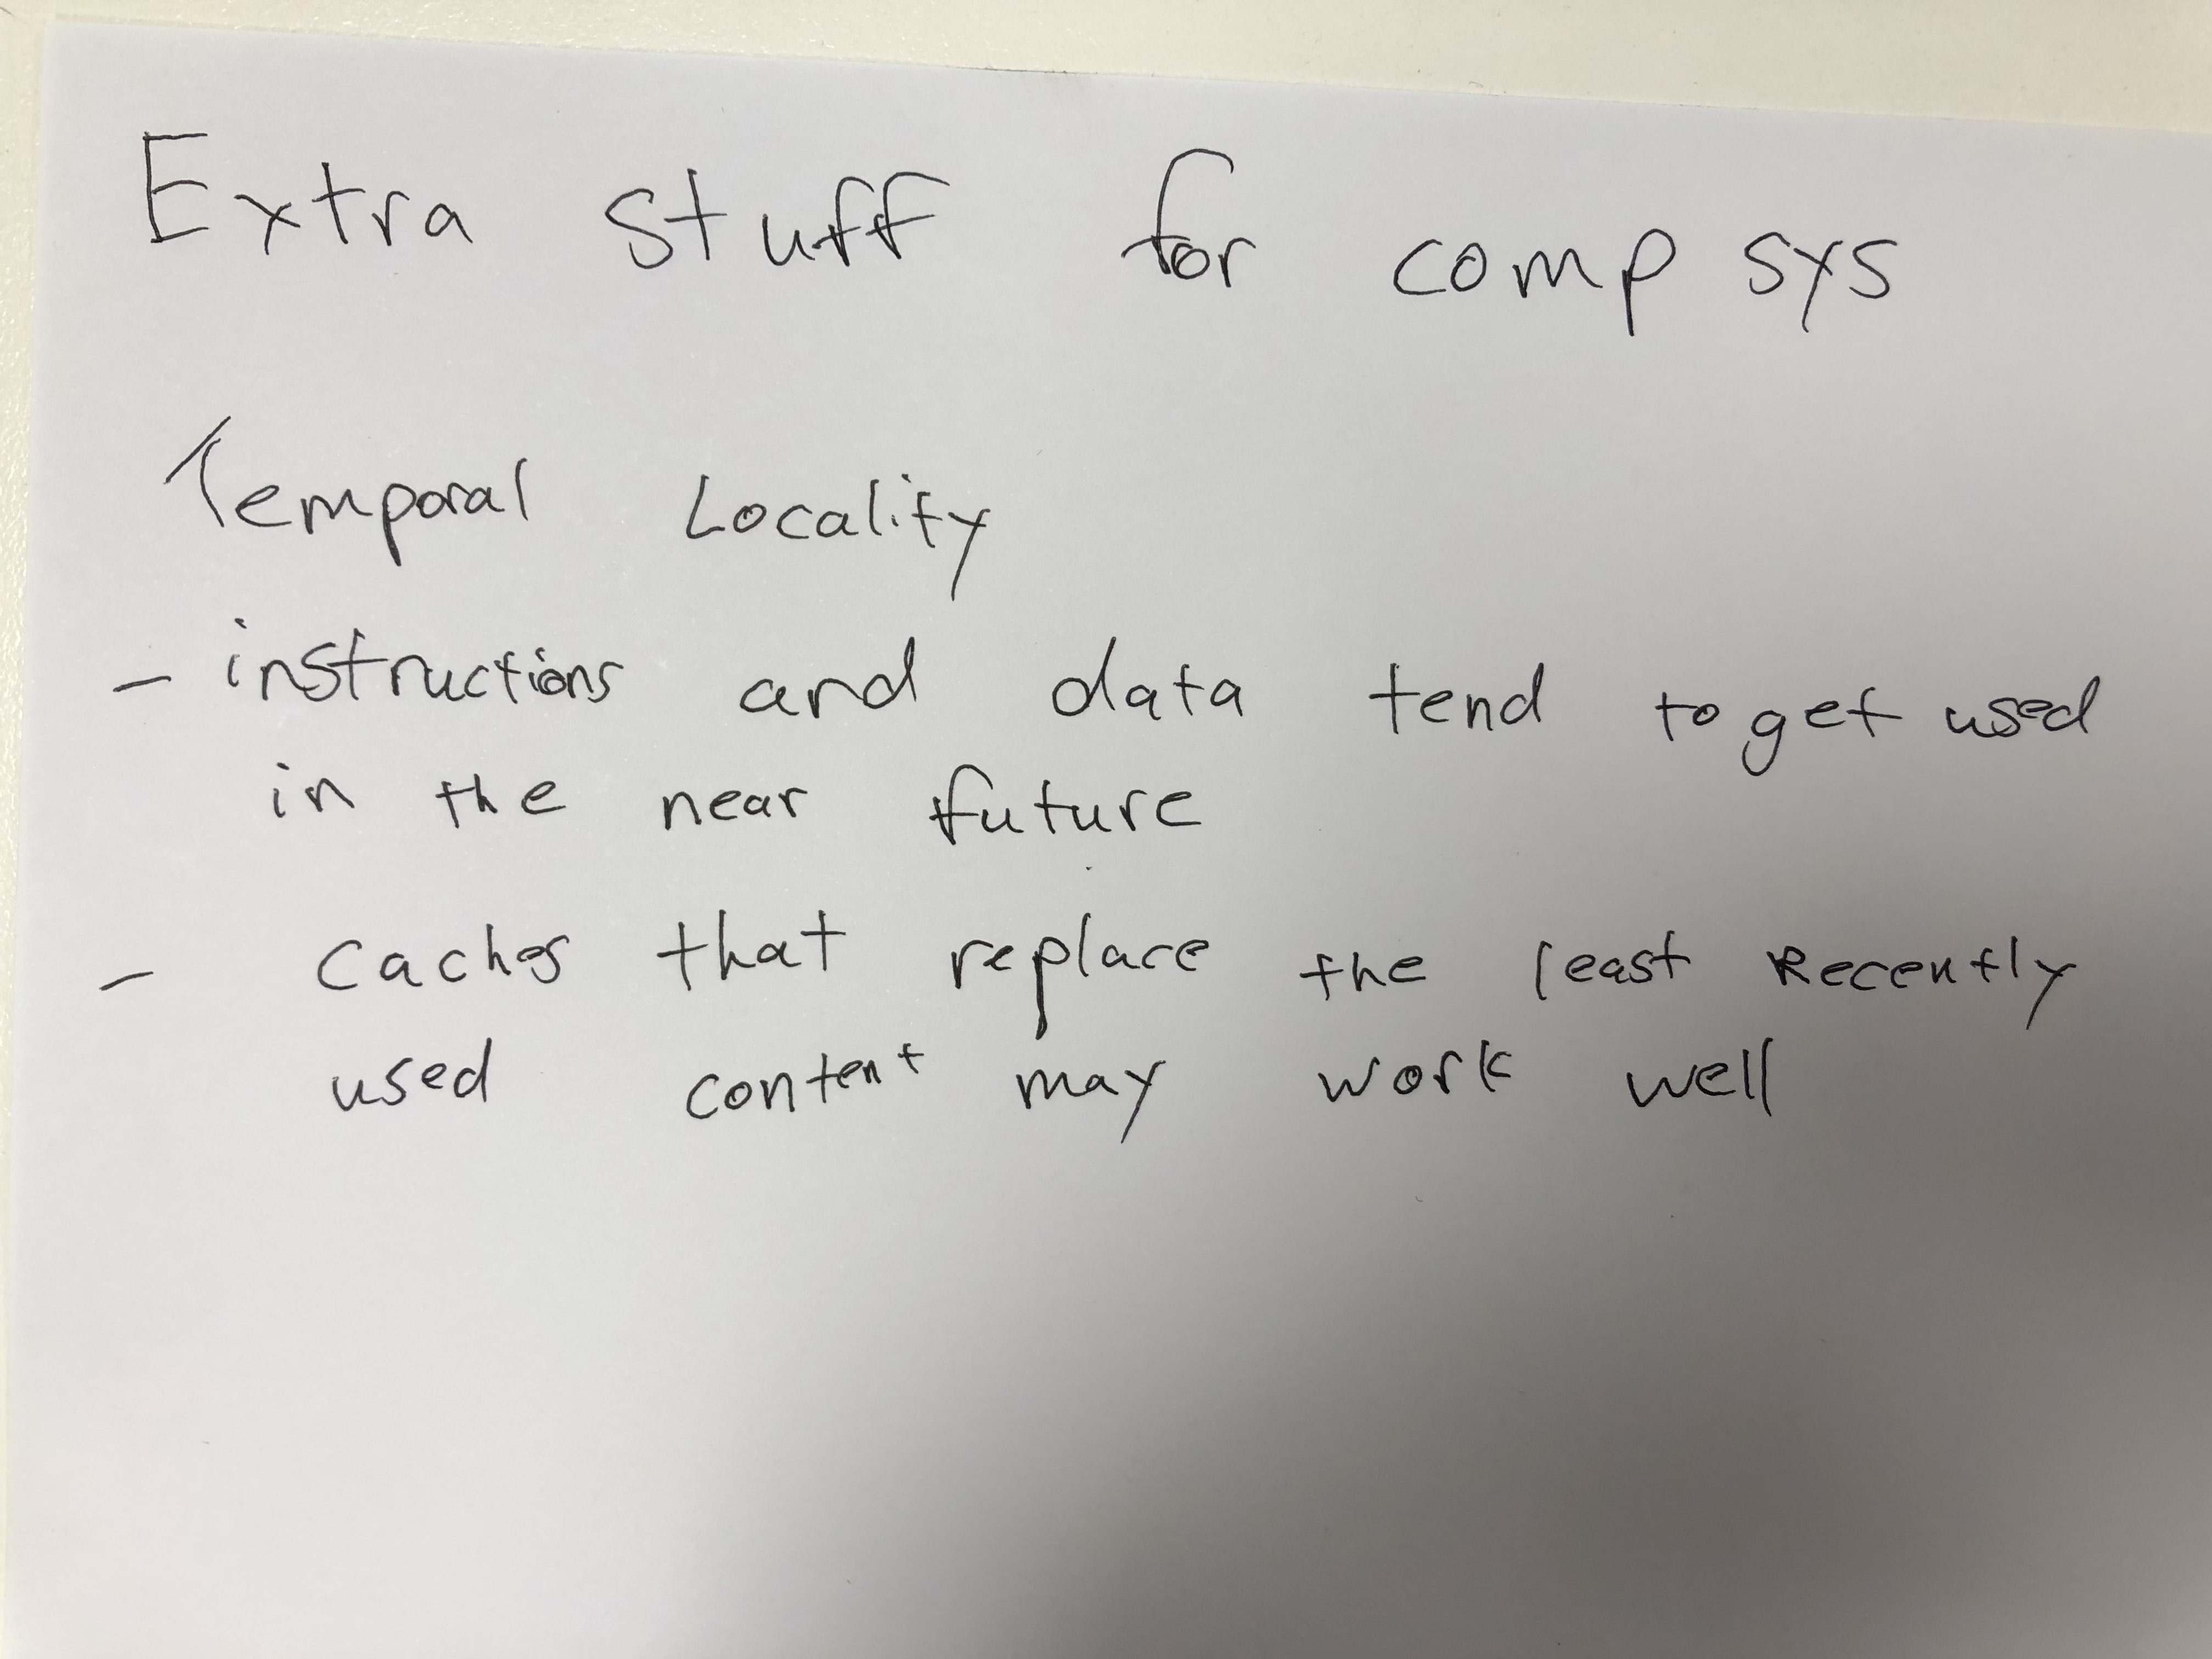 Extra stuff for comp sys
Temporal Locality
- instructions and data tend to get used
in the near future
- caches that replace the least Recently
used content may work well